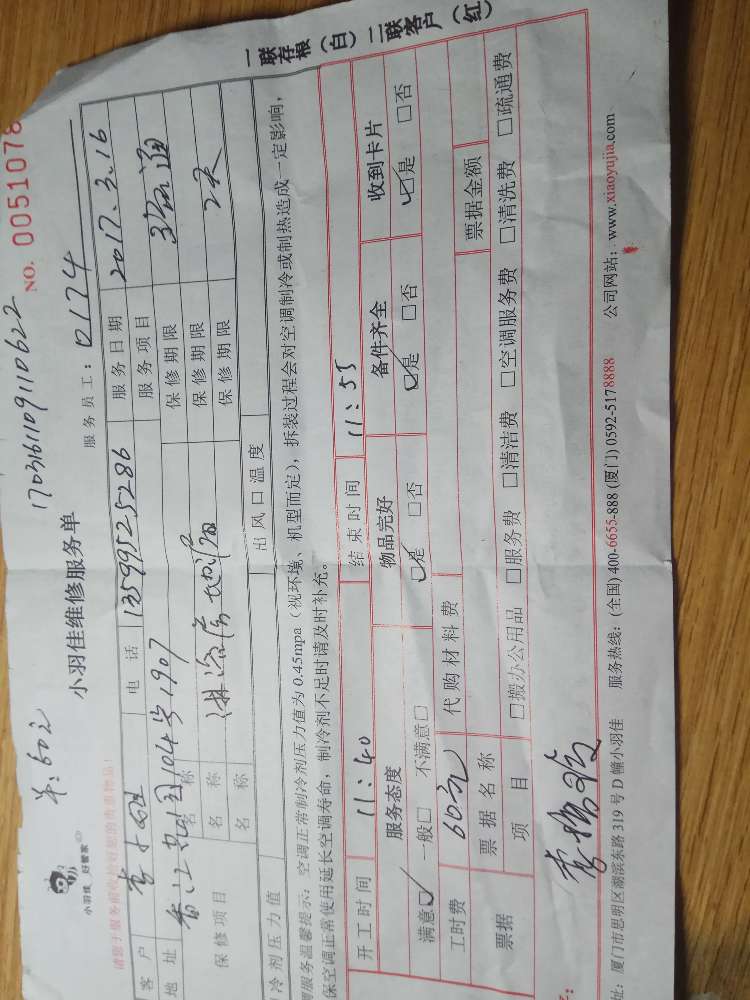 一联存根（白） 二联客户（红）
单：60元
170316110911062２
小羽佳 好管家
小羽佳维修服务单
NO. 0051078
服务员工：0174
客户 电话 13599525286 服务日期 2017.3.16
地址 104号1907 服务项目 疏通
保修项目 名称 淋浴房地漏 保修期限 2天
名称 保修期限
名称 保修期限
冷剂压力值 出风口温度
调服务温馨提示：空调正常制冷剂压力值为 0.45mpa（视环境、机型而定），拆装过程会对空调制冷或制热造成一定影响，
保空调正常使用延长空调寿命，制冷剂不足时请及时补充。
开工时间 11：40 结束时间 11：55
服务态度 物品完好 备件齐全 收到卡片
满意☑ 一般□ 不满意□ ☑是 □否 ☑是 □否 ☑是 □否
工时费 60元 代购材料费
票据 票据名称 票据金额
项目 □搬办公用品 □服务费 □清洁费 □空调服务费 □清洗费 □疏通费
址：厦门市思明区湖滨东路 319 号 D 幢小羽佳 服务热线：(全国) 400-6655-888 (厦门) 0592-5178888 公司网站：www.xiaoyujia.com